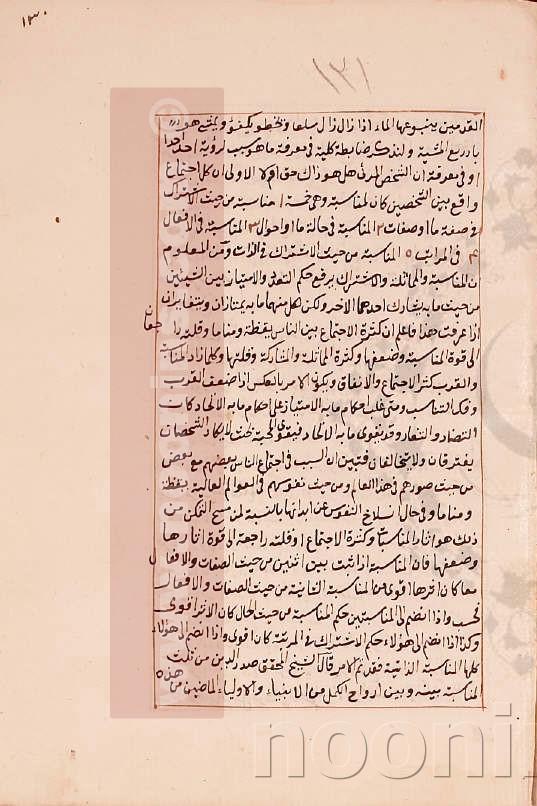 ١٣٠
١٣١
القدمين ينبوعها الماء اذا زال زال سلعا ويخطو يكفؤ ويمشى هونا
باذريع المشية ولنذكر ضابطة كلية فى معرفة ما هو سبب لرؤية احد احدا
او فى معرفة ان الشخص المرئى هل هو ذاك حق ام لا الاولى ان كل اجتماع
واقع بين الشخصين كان لمناسبة وهى خمسة ١ مناسبة من حيث الاشتراك
فى صفة ما او صفات ٢ المناسبة فى حالة ما او احوال ٣ المناسبة فى الافعال
٤ فى المراتب ٥ المناسبة من حيث الاشتراك فى الذات ومن المعلوم
ان المناسبة والمماثلة والاشتراك يرفع حكم التعدد والامتياز بين الشيئين
من حيث ما به يشارك احدهما الآخر ولكن لكل منهما ما به يمتازان ويتغايران
اذا عرفت هذا فاعلم ان كثرة الاجتماع بين الناس يقظة ومناما وقلته راجعان
الى قوة المناسبة وضعفها وكثرة المماثلة والمشاركة وقلتها وكلما زاد المناسبة
والقرب كثر الاجتماع والاتفاق ويكون الامر بالعكس اذا ضعف القرب
وفكه التناسب ومتى غلب احكام ما به الامتياز على احكام ما به الاتحاد كان
التضاد والتنفار وقد يقوى ما به الاتحاد فيقوى المحبة بحيث لا يكاد الشخصان
يفترقان ولا يتخالفان فتبين ان السبب فى اجتماع الناس بعضهم مع بعض
من حيث صورهم فى هذا العالم ومن حيث نفوسهم فى العوالم العالية يقظة
ومناما وفى حال انسلاخ النفوس عن ابدانها بالنسبة لمن منح التمكن من
ذلك هو اثار المناسبات وكثرة الاجتماع او قلته راجعة الى قوة اثارها
وضعفها فان المناسبة اذا ثبت بين اثنين من حيث الصفات والافعال
معا كان اثرها اقوى من المناسبة الثابتة من حيث الصفات والافعال
فحسب واذا انضم الى المناسبتين حكم المناسبة من حيث الحال كان الاثر اقوى
وكذا اذا انضم الى هؤلاء حكم الاشتراك فى المرتبة كان اقوى واذا انضم الى هؤلاء
كلها المناسبة الذاتية فقد تم الامر قال الشيخ المحقق صدر الدين من ثبت
المناسبة بينه وبين ارواح الكمل من الانبياء والاولياء الماضين من هذه
nooni